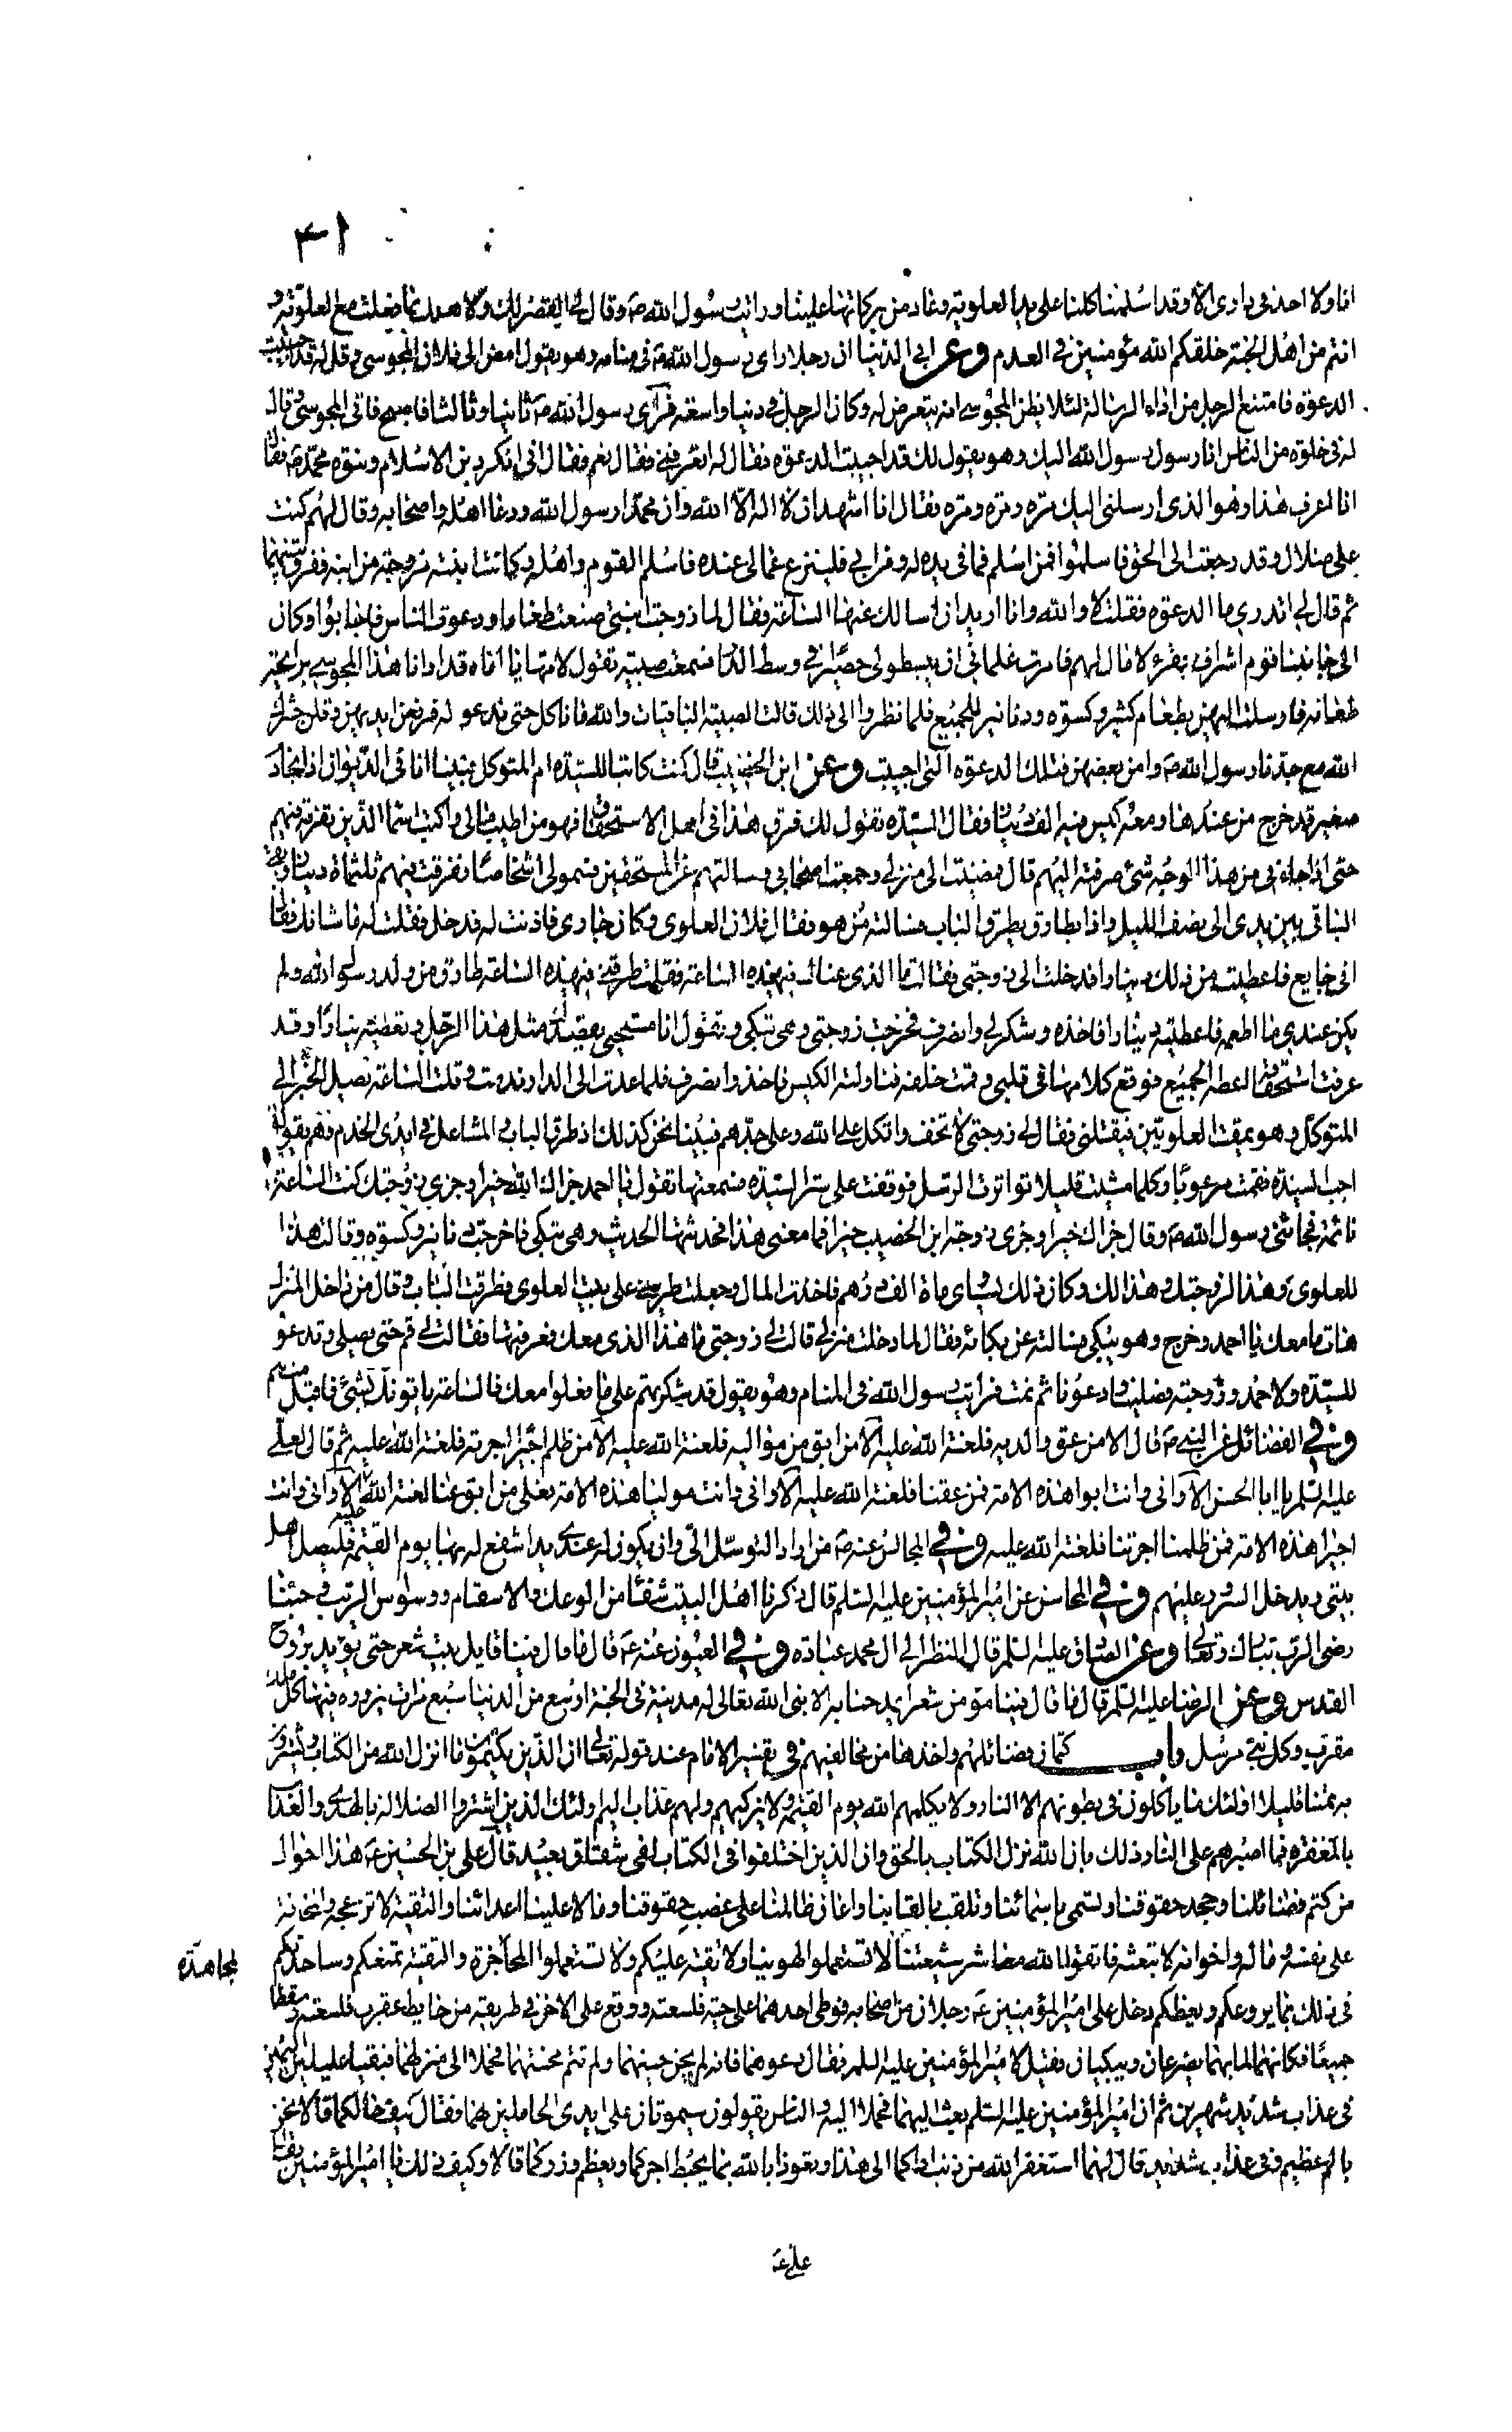 ٤١
انا ولا احد في داري الا وقد اسلمنا كلنا على يد العلوية وعاد من بركاتها علينا ورايت رسول الله ص وقال لي القصر لك ولاهلك بما فعلت مع العلوية و
انتم من اهل الجنة خلقكم الله مؤمنين في العدم وعن ابي الدنيا ان رجلا راى رسول الله ص في منامه وهو يقول امض الى فلان المجوسي وقل له قد اجيبت
الدعوة فامتنع الرجل من اداء الرسالة لئلا يظن المجوسي انه يتعرض له وكان الرجل في دنيا واسعة فراى رسول الله ص ثانيا وثالثا فاصبح فاتى المجوسي وقال
له في خلوة من الناس انا رسول رسول الله اليك وهو يقول لك قد اجيبت الدعوة فقال له اتعرفني فقال نعم فقال اني انكر دين الاسلام ونبوة محمد ص فقال
انا اعرف هذا وهو الذي ارسلني اليك مرة ومرة ومرة فقال انا اشهد ان لا اله الا الله وان محمدا رسول الله ودعا اهله واصحابه وقال لهم كنت
على ضلال وقد رجعت الى الحق فاسلموا فمن اسلم فما في يده له ومن ابى فلينزع عما لي عنده فاسلم القوم واهله وكانت ابنته مزوجة من ابنه ففرق بينهما
ثم قال لي اتدري ما الدعوة فقلت لا والله وانا اريد ان اسالك عنها الساعة فقال لما زوجت ابنتي صنعت طعاما ودعوت الناس فاجابوا وكان
الى جانبنا قوم اشراف فقراء لا مال لهم فامرت غلماني ان يبسطوا لي حصيرا في وسط الدار فسمعت صبية تقول لامها يا اماه قد اذانا هذا المجوسي برايحة
طعامه فارسلت اليهن بطعام كثير وكسوة ودنانير للجميع فلما نظروا الى ذلك قالت الصبية للباقيات والله ما ناكل حتى ندعو له فرفعن ايديهن وقلن حشرك
الله مع جدنا رسول الله ص وامن بعضهن فتلك الدعوة التي اجيبت وعن ابن الخضيب قال كنت كاتبا للسيدة ام المتوكل فبينا انا في الديوان اذا بخادم
صغير قد خرج من عندها ومعه كيس فيه الف دينار فقال السيدة تقول لك فرق هذا في اهل الاستحقاق فهو من اطيب مالي واكتب اسماء الذين تفرقه فيهم
حتى اذا جاءني من هذا الوجه شئ صرفته اليهم قال فمضيت الى منزلي وجمعت اصحابي وسالتهم عن المستحقين فسموا لي اشخاصا ففرقت فيهم ثلثمائة دينار وبقي
الباقي بين يدي الى نصف الليل واذا بطارق يطرق الباب فسالته من هو فقال فلان العلوي وكان جاري فاذنت له فدخل فقلت له ما شانك فقال
اني جايع فاعطيته من ذلك دينارا فدخلت الى زوجتي فقالت ما الذي عناك في هذه الساعة فقلت طرقني في هذه الساعة طارق من ولد رسول الله ولم
يكن عندي ما اطعمه فاعطيته دينارا فاخذه وشكر لي وانصرف فخرجت زوجتي وهي تبكي وتقول اما تستحيي يقصدك مثل هذا الرجل وتعطيه دينارا وقد
عرفت استحقاقه اعطه الجميع فوقع كلامها في قلبي وقمت خلفه فناولته الكيس فاخذ وانصرف فلما عدت الى الدار ندمت وقلت الساعة يصل الخبر الى
المتوكل وهو يمقت العلويين فيقتلني فقال لي زوجتي لا تخف واتكل على الله وعلى جدهم فبينا نحن كذلك اذ طرق الباب والمشاعل في ايدي الخدم وهم يقولون
اجب السيدة فقمت مرعوبا وكلما مشيت قليلا تواترت الرسل فوقفت على ستر السيدة فسمعتها تقول يا احمد جزاك الله خيرا وجزى زوجتك كنت الساعة
نائمة فجاءني رسول الله ص وقال جزاك خيرا وجزى زوجة ابن الخضيب خيرا فما معنى هذا فحدثتها الحديث وهي تبكي فاخرجت دنانير وكسوة وقالت هذا
للعلوي وهذا لزوجتك وهذا لك وكان ذلك يساوي مائة الف درهم فاخذت المال وجعلت طريقي على بيت العلوي فطرقت الباب وقال من داخل المنزل
هات ما معك يا احمد وخرج وهو يبكي فسالته عن بكائه فقال لما دخلت منزلي قالت لي زوجتي ما هذا الذي معك فعرفتها فقالت لي قم حتى نصلي وندعو
للسيدة ولاحمد وزوجته فصلينا ودعونا ثم نمت فرايت رسول الله في المنام وهو يقول قد شكرتهم على ما فعلوا معك فالساعة ياتونك بشئ فاقبل منهم
وفي الفضائل عن النبي ص قال الا من عق والديه فلعنة الله عليه الا من ابق من مواليه فلعنة الله عليه الا من ظلم اجيرا اجرته فلعنة الله عليه ثم قال لعلي
عليه السلم يا ابا الحسن الا واني وانت ابوا هذه الامة فمن عقنا فلعنة الله عليه الا واني وانت موليا هذه الامة فعلى من ابق عنا لعنة الله عليه الا واني وانت
اجيرا هذه الامة فمن ظلمنا اجرتنا فلعنة الله عليه وفي المجالس عنه ص من اراد التوسل الي وان يكون له عندي يد اشفع له بها يوم القيمة فليصل اهل
بيتي ويدخل السرور عليهم وفي المحاسن عن امير المؤمنين عليه السلم قال ذكرنا اهل البيت شفاء من الوعك والاسقام ووسواس الريب وحبنا
رضى الرب تبارك وتعالى وعن الصادق عليه السلم قال النظر الى ال محمد عبادة وفي العيون عنه ع قال ما قال فينا قايل بيت شعر حتى يؤيد بروح
القدس وعن الرضا عليه السلم قال ما قال فينا مؤمن شعرا يمدحنا به الا بنى الله تعالى له مدينة في الجنة اوسع من الدنيا سبع مرات يزوره فيها كل ملك
مقرب وكل نبي مرسل باب كتمان فضائلهم واخذها من مخالفيهم في تفسير الامام عند قوله تعالى ان الذين يكتمون ما انزل الله من الكتاب ويشترون
به ثمنا قليلا اولئك ما ياكلون في بطونهم الا النار ولا يكلمهم الله يوم القيمة ولا يزكيهم ولهم عذاب اليم اولئك الذين اشتروا الضلالة بالهدى والعذاب
بالمغفرة فما اصبرهم على النار ذلك بان الله نزل الكتاب بالحق وان الذين اختلفوا في الكتاب لفي شقاق بعيد قال علي بن الحسين ع هذا احوال
من كتم فضائلنا وجحد حقوقنا وتسمى باسمائنا وتلقب بالقابنا واعان ظالمنا على غصب حقوقنا ومالا علينا اعدائنا والتقية لا تزعجه والمخافة
على نفسه وماله واخوانه لا تبعثه فاتقوا الله معاشر شيعتنا لا تستعملوا الهوينا ولا تقية عليكم ولا تستعملوا المهاجرة والتقية تمنعكم وساحدثكم
لمجاهدة
في ذلك بما يردعكم ويعظكم دخل على امير المؤمنين ع رجلان من اصحابه فوطى احدهما على حية فلسعته ووقع على الاخر في طريقه من حايط عقرب فلسعته وسقطا
جميعا فكانهما لما بهما يضرعان ويبكيان فقيل لامير المؤمنين عليه السلم فقال دعوهما فانه لم يحن حينهما ولم تتم محنتهما فحملا الى منزلهما فبقيا عليلين اليمين
في عذاب شديد شهرين ثم ان امير المؤمنين عليه السلم بعث اليهما فحملا اليه والناس يقولون سيموتان على ايدي الحاملين لهما فقال كيف حالكما قالا نحن
بالم عظيم وفي عذاب شديد قال لهما استغفرا الله من ذنب اتاكما الى هذا وتعوذا بالله مما يحبط اجركما ويعظم وزركما قالا وكيف ذلك يا امير المؤمنين فقال
علي ع